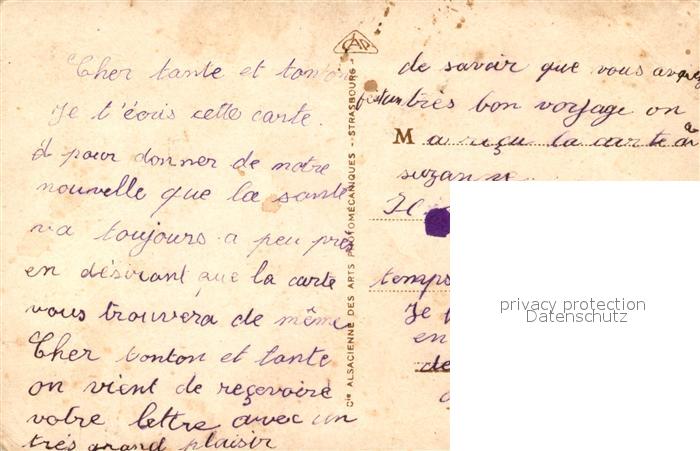 Cher tante et tonton
Je t'écris cette carte.
d pour donner de notre
nouvelle que la santé
va toujours a peu près
en désirant que la carte
vous trouvera de même
Cher tonton et tante
on vient de reçevoire
votre lettre avec un
très grand plaisir
CAP
Cie ALSACIENNE DES ARTS PHOTOMÉCANIQUES - STRASBOURG
de savoir que vous avez
fait un très bon voyage on
M a reçu la carte à
suzanne.
Il
temps
Je
en
de
privacy protection
Datenschutz